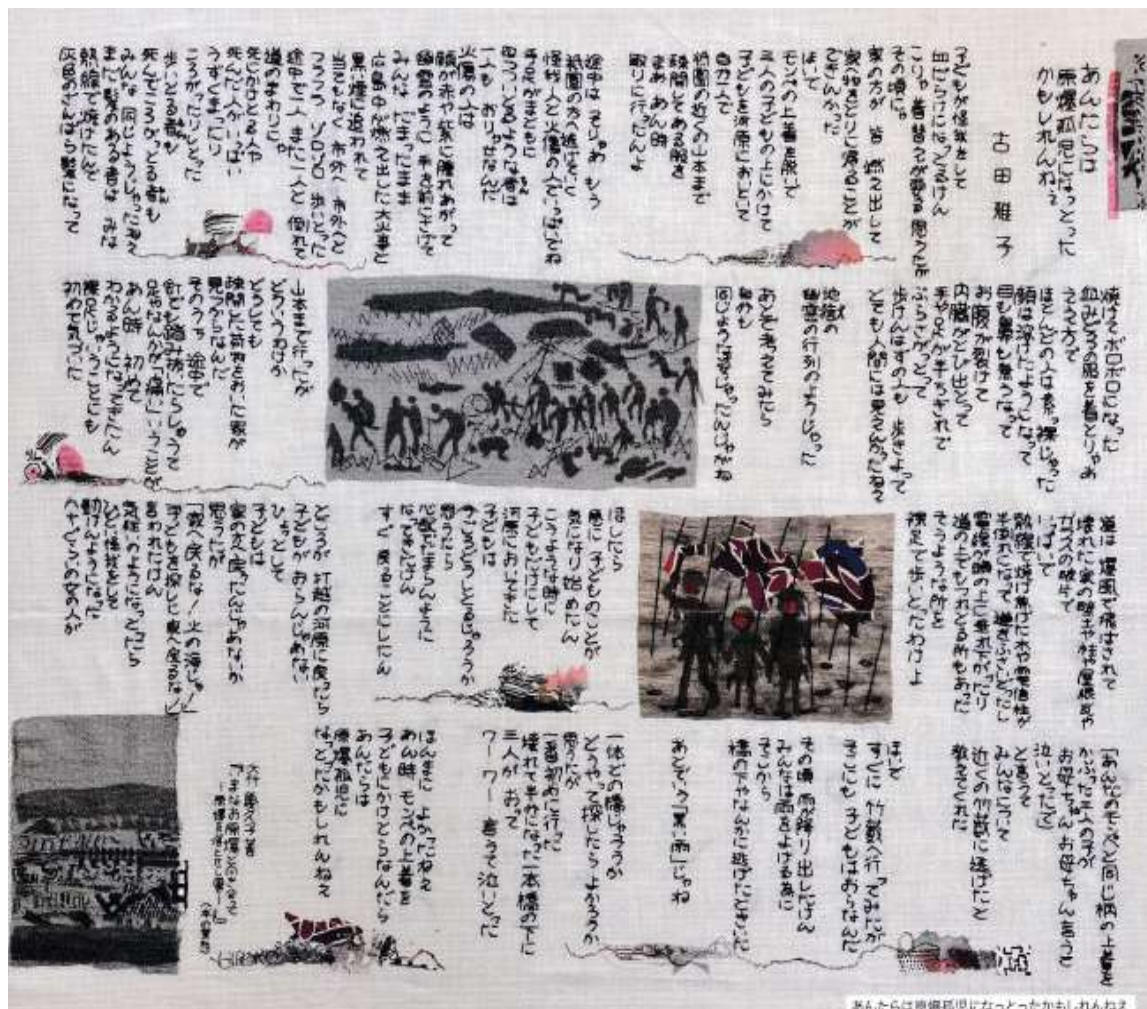 あんたらは
原爆孤児になっとった
かもしれんねえ
古田雅子
子どもが怪我をして
血だらけになっとるけん
その頃にゃ
家の方が 皆 燃え出して
できんかった
ほいで
モンペの上着を脱いで
三人の子どもの上にかけて
子どもを河原において
自分一人で
祇園の近くの山本まで
疎開してある服を
まあ あん時
取りに行ったんよ
途中は そりゃあ もう
祇園の方へ逃げよって
怪我人と火傷の人でいっぱいでね
手足がまともに
一人も おりゃせなんだ
火傷の人は
顔が赤や紫に腫れあがって
幽霊のように 手を前にさげて
みんな だまったまま
広島中が燃え出した大火事と
黒い煙に追われて
当てもなく 市外へ 市外へと
フラフラ ゾロゾロ 歩いとった
途中で一人 また一人と 倒れて
道のまわりにゃ
死にかけとる人や
死んだ人がいっぱい
うずくまったり
ころがったりしとった
歩いとる者も
死んでころがっとる者も
みんな 同じようじゃったねえ
まだ髪のある者は みな
熱線で焼けたんで
灰色のざんばら髪になって
焼けてボロボロになった
血みどろの服を着とりゃあ
ええ方で
ほとんどの人は素っ裸じゃった
顔は溶けたようになって
目も鼻も無うなって
お腹が裂けて
内臓がとび出とって
手や足が半ちぎれで
ぶらさがっとって
歩けんはずの人も 歩きよって
とても人間には見えんかったねえ
地獄の
幽霊の行列のようじゃった
あとで考えてみたら
自分も
同じような姿じゃったんじゃがね
山本まで行ったが
どういうわけか
どうしても
疎開した荷物をおいた家が
見つからなんだ
そのうち 途中で
釘でも踏み抜いたらしゅうて
足やなんかが「痛い」いうことが
わかるようになってきたん
あん時 初めて
裸足じゃいうことにも
初めて気づいた
道は 爆風で飛ばされて
壊れた家の壁土や柱や屋根瓦や
ガラスの破片で
いっぱいで
熱線で焼け焦げた木や電信柱が
半倒れになって 道をふさいだり
電線が頭の上に垂れ下がったり
道の上でもつれとる所もあった
そうような所を
裸足で歩いとったわけよ
ほしたら
急に 子どものことが
気になり始めたん
こうような時に
子どもだけにして
河原においてきた
子どもは
今ごろどうしとるじゃろうか
思うたら
心配でたまらんように
なってきたけん
すぐ 戻ることにしたん
ところが 打越の河原に戻ったら
子どもが おらんじゃない
ひょっとして
子どもは
家の方へ戻ったんじゃあないか
思うたが
「東へ戻るな!火の海じゃ!
子どもを探しに東へ戻るな!」
言われたけん
気狂いのようになっとったら
ひどい怪我をして
動けんようになった
「あんたのモンペと同じ柄の上着を
かぶった三人の子が
お母ちゃん お母ちゃん 言うて
泣いとったで」
と言うて
みんなについて
近くの竹藪に逃げたと
教えてくれた
ほいで
すぐに 竹藪へ行ってみたが
そこにも 子どもはおらなんだ
その頃 雨が降り出したけん
みんなは雨をよける為に
そこから
橋の下やなんかに逃げたいうた
あとでいう「黒い雨」じゃね
一体どの橋じゃろうか
どうやって探したらよかろうか
思うたが
一番初めに行った
壊れて半分になった一本橋の下に
三人が おって
ワーワー 言うて泣いとった
ほんまに よかったねえ
あん時 モンペの上着を
子どもにかけとらなんだら
あんたらは
原爆孤児に
なっとったかもしれんねえ
あんたらは原爆孤児になっとったかもしれんねえ